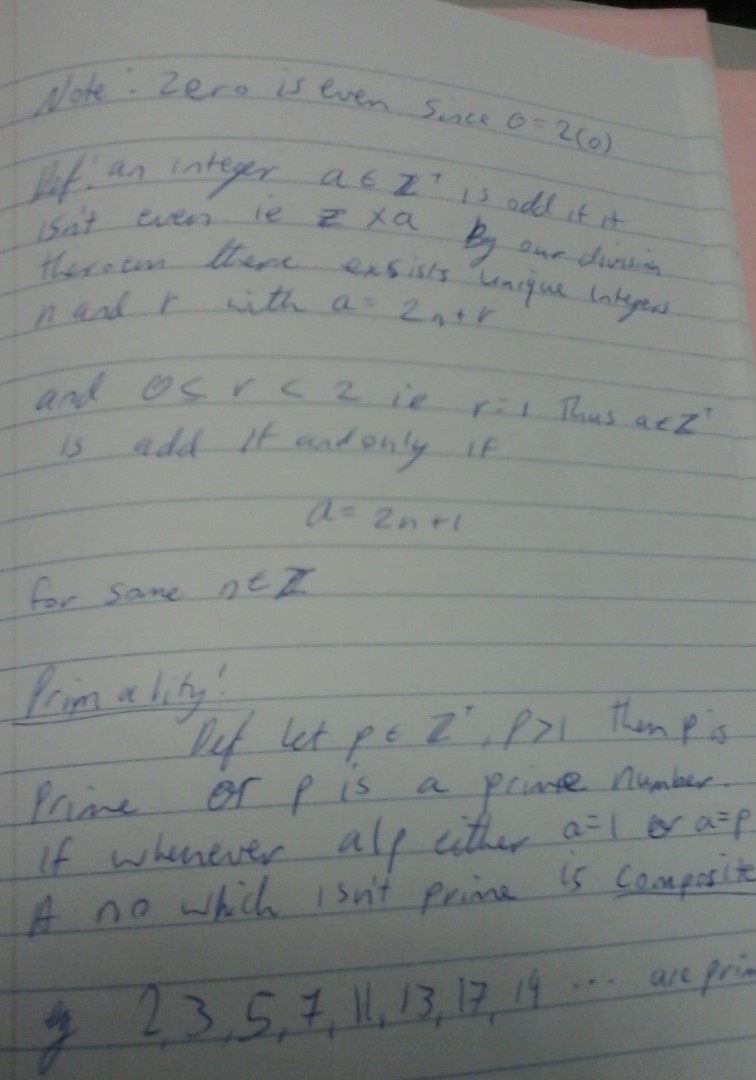 Note: Zero is even since 0=2(0)
Def: an integer a ∈ ℤ⁺ is odd if it
isn't even ie 2 ∤ a By our division
theroem there exsists unique integers
n and r with a = 2n+r
and 0 ≤ r < 2 ie r=1 Thus a ∈ ℤ⁺
is odd if and only if
a = 2n+1
for some n ∈ ℤ
Primality:
Def let p ∈ ℤ⁺, p>1 Then p is
Prime or p is a prime number
if whenever a|p either a=1 or a=p
A no which isn't prime is composite
eg 2, 3, 5, 7, 11, 13, 17, 19 ... are prim